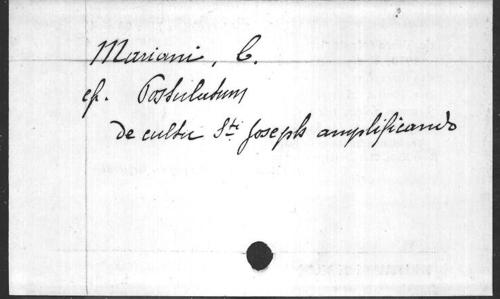 Mariani, C.
cf. Postulatum
de cultu S.ti Joseph amplificando